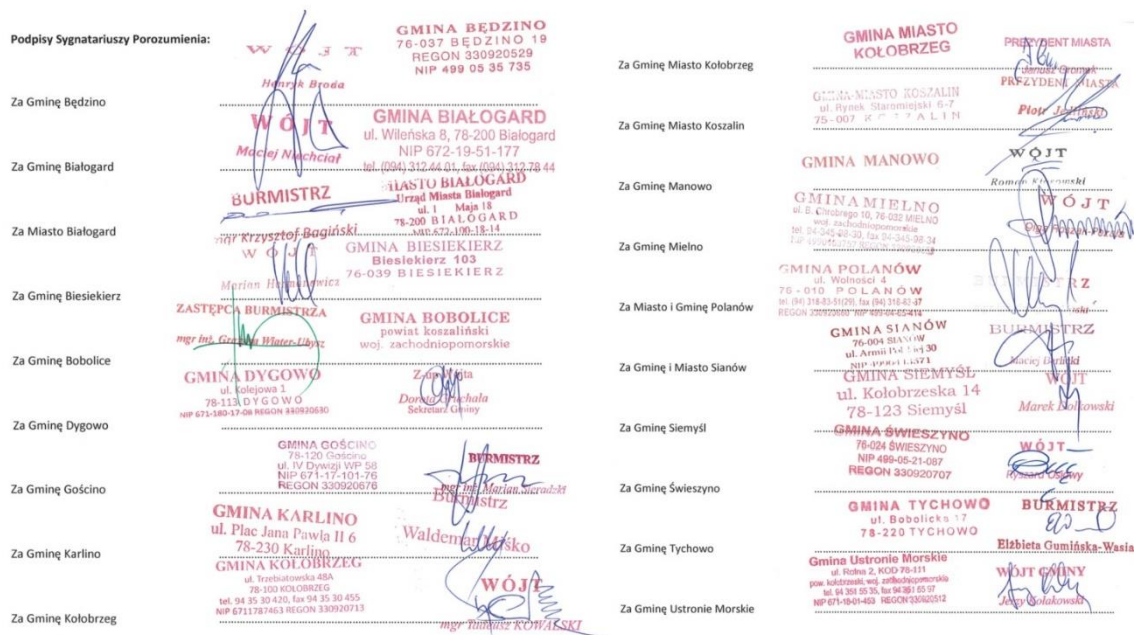 Podpisy Sygnatariuszy Porozumienia:
WÓJT
Henryk Broda
GMINA BĘDZINO
76-037 BĘDZINO 19
REGON 330920529
NIP 499 05 35 735
Za Gminę Będzino
WÓJT
Maciej Niechciał
GMINA BIAŁOGARD
ul. Wileńska 8, 78-200 Białogard
NIP 672-19-51-177
tel. (094) 312 44 01, fax (094) 312 78 44
Za Gminę Białogard
BURMISTRZ
Krzysztof Bagiński
MIASTO BIAŁOGARD
Urząd Miasta Białogard
ul. 1 Maja 18
78-200 BIAŁOGARD
NIP 672-100-18-14
Za Miasto Białogard
WÓJT
Marian
GMINA BIESIEKIERZ
Biesiekierz 103
76-039 BIESIEKIERZ
Za Gminę Biesiekierz
ZASTĘPCA BURMISTRZA
mgr inż.
GMINA BOBOLICE
powiat koszaliński
woj. zachodniopomorskie
Za Gminę Bobolice
GMINA DYGOWO
ul. Kolejowa 1
78-113 DYGOWO
NIP 671-180-17-08 REGON 330920630
Dorota
Sekretarz Gminy
Za Gminę Dygowo
GMINA GOŚCINO
78-120 Gościno
ul. IV Dywizji WP 58
NIP 671-17-101-76
REGON 330920676
BURMISTRZ
mgr inż. Marian Sieradzki
Za Gminę Gościno
GMINA KARLINO
ul. Plac Jana Pawła II 6
78-230 Karlino
Burmistrz
Waldemar Miśko
Za Gminę Karlino
GMINA KOŁOBRZEG
ul. Trzebiatowska 48A
78-100 KOŁOBRZEG
tel. 94 35 30 420, fax 94 35 30 455
NIP 6711787463 REGON 330920713
WÓJT
mgr Tadeusz KOWALSKI
Za Gminę Kołobrzeg
GMINA MIASTO
KOŁOBRZEG
PREZYDENT MIASTA
Janusz Gromek
Za Gminę Miasto Kołobrzeg
GMINA-MIASTO KOSZALIN
ul. Rynek Staromiejski 6-7
75-007 KOSZALIN
PREZYDENT MIASTA
Piotr Jedliński
Za Gminę Miasto Koszalin
GMINA MANOWO
WÓJT
Roman
Za Gminę Manowo
GMINA MIELNO
ul. B. Chrobrego 10, 76-032 MIELNO
woj. zachodniopomorskie
tel. 94-345-98-30, fax 94-345-98-34
WÓJT
Olga
Za Gminę Mielno
GMINA POLANÓW
ul. Wolności 4
76-010 POLANÓW
tel. (94) 318-83-51(29), fax (94)
BURMISTRZ
Za Miasto i Gminę Polanów
GMINA SIANÓW
76-004 SIANÓW
ul. Armii Polskiej 30
BURMISTRZ
Maciej Berlicki
Za Gminę i Miasto Sianów
GMINA SIEMYŚL
ul. Kołobrzeska 14
78-123 Siemyśl
WÓJT
Marek Dołkowski
Za Gminę Siemyśl
GMINA ŚWIESZYNO
76-024 ŚWIESZYNO
NIP 499-05-21-087
REGON 330920707
WÓJT
Ryszard Osiowy
Za Gminę Świeszyno
GMINA TYCHOWO
ul. Bobolicka 17
78-220 TYCHOWO
BURMISTRZ
Elżbieta Gumińska-Wasia
Za Gminę Tychowo
Gmina Ustronie Morskie
ul. Rolna 2, KOD 78-111
pow. kołobrzeski, woj. zachodniopomorskie
tel. 94 351 55 35, fax 94 351 55 97
NIP 671-18-01-453 REGON 330920512
WÓJT GMINY
Jerzy Kołakowski
Za Gminę Ustronie Morskie